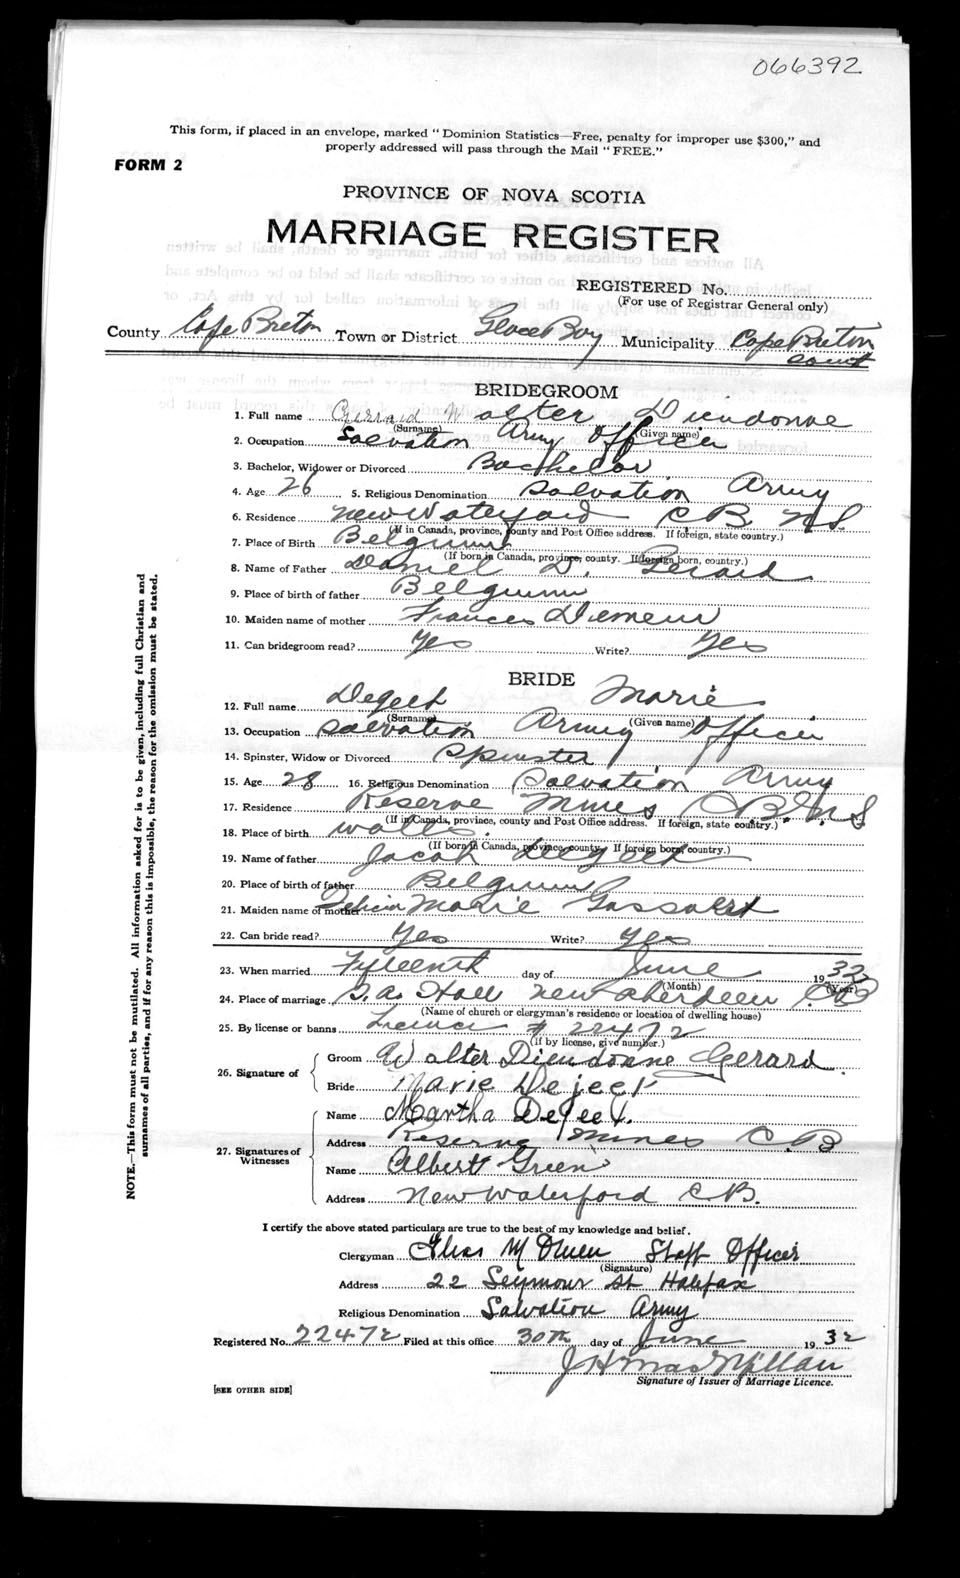 066392
This form, if placed in an envelope, marked "Dominion Statistics—Free, penalty for improper use $300," and
properly addressed will pass through the Mail "FREE."
FORM 2
PROVINCE OF NOVA SCOTIA
MARRIAGE REGISTER
REGISTERED No.
(For use of Registrar General only)
County Cape Breton Town or District Glace Bay Municipality Cape Breton
BRIDEGROOM
1. Full name Gerrard Walter Dieudonne
(Surname) (Given name)
2. Occupation Salvation Army Officer
3. Bachelor, Widower or Divorced Bachelor
4. Age 26 5. Religious Denomination Salvation Army
6. Residence New Waterford C B. N S.
(If in Canada, province, county and Post Office address. If foreign, state country.)
7. Place of Birth Belgium
(If born in Canada, province, county. If foreign born, country.)
8. Name of Father Daniel D. Gerard
9. Place of birth of father Belgium
10. Maiden name of mother Frances
11. Can bridegroom read? Yes Write? Yes
BRIDE
12. Full name Degeet Marie
(Surname) (Given name)
13. Occupation Salvation Army Officer
14. Spinster, Widow or Divorced Spinster
15. Age 28 16. Religious Denomination Salvation Army
17. Residence Reserve Mines C B. N S
(If in Canada, province, county and Post Office address. If foreign, state country.)
18. Place of birth
(If born in Canada, province, county. If foreign born, country.)
19. Name of father Jacob Degeet
20. Place of birth of father Belgium
21. Maiden name of mother Marie
22. Can bride read? Yes Write? Yes
23. When married Fifteenth day of June 1932
(Month) (Year)
24. Place of marriage S. A. Hall New Aberdeen C B
(Name of church or clergyman's residence or location of dwelling house)
25. By license or banns License # 22472
(If by license, give number.)
26. Signature of
Groom Walter Dieudonne Gerard
Bride Marie Dejeet
27. Signatures of Witnesses
Name Martha Dejeet.
Address Reserve Mines C. B
Name Albert Green
Address New Waterford C B.
I certify the above stated particulars are true to the best of my knowledge and belief.
Clergyman M Owen Staff Officer
(Signature)
Address 22 Seymour St Halifax
Religious Denomination Salvation Army
Registered No. 22472 Filed at this office 30th day of June 1932
J H MacMillan
Signature of Issuer of Marriage Licence.
[SEE OTHER SIDE]
NOTE.—This form must not be mutilated. All information asked for is to be given, including full Christian and
surnames of all parties, and if for any reason this is impossible, the reason for the omission must be stated.